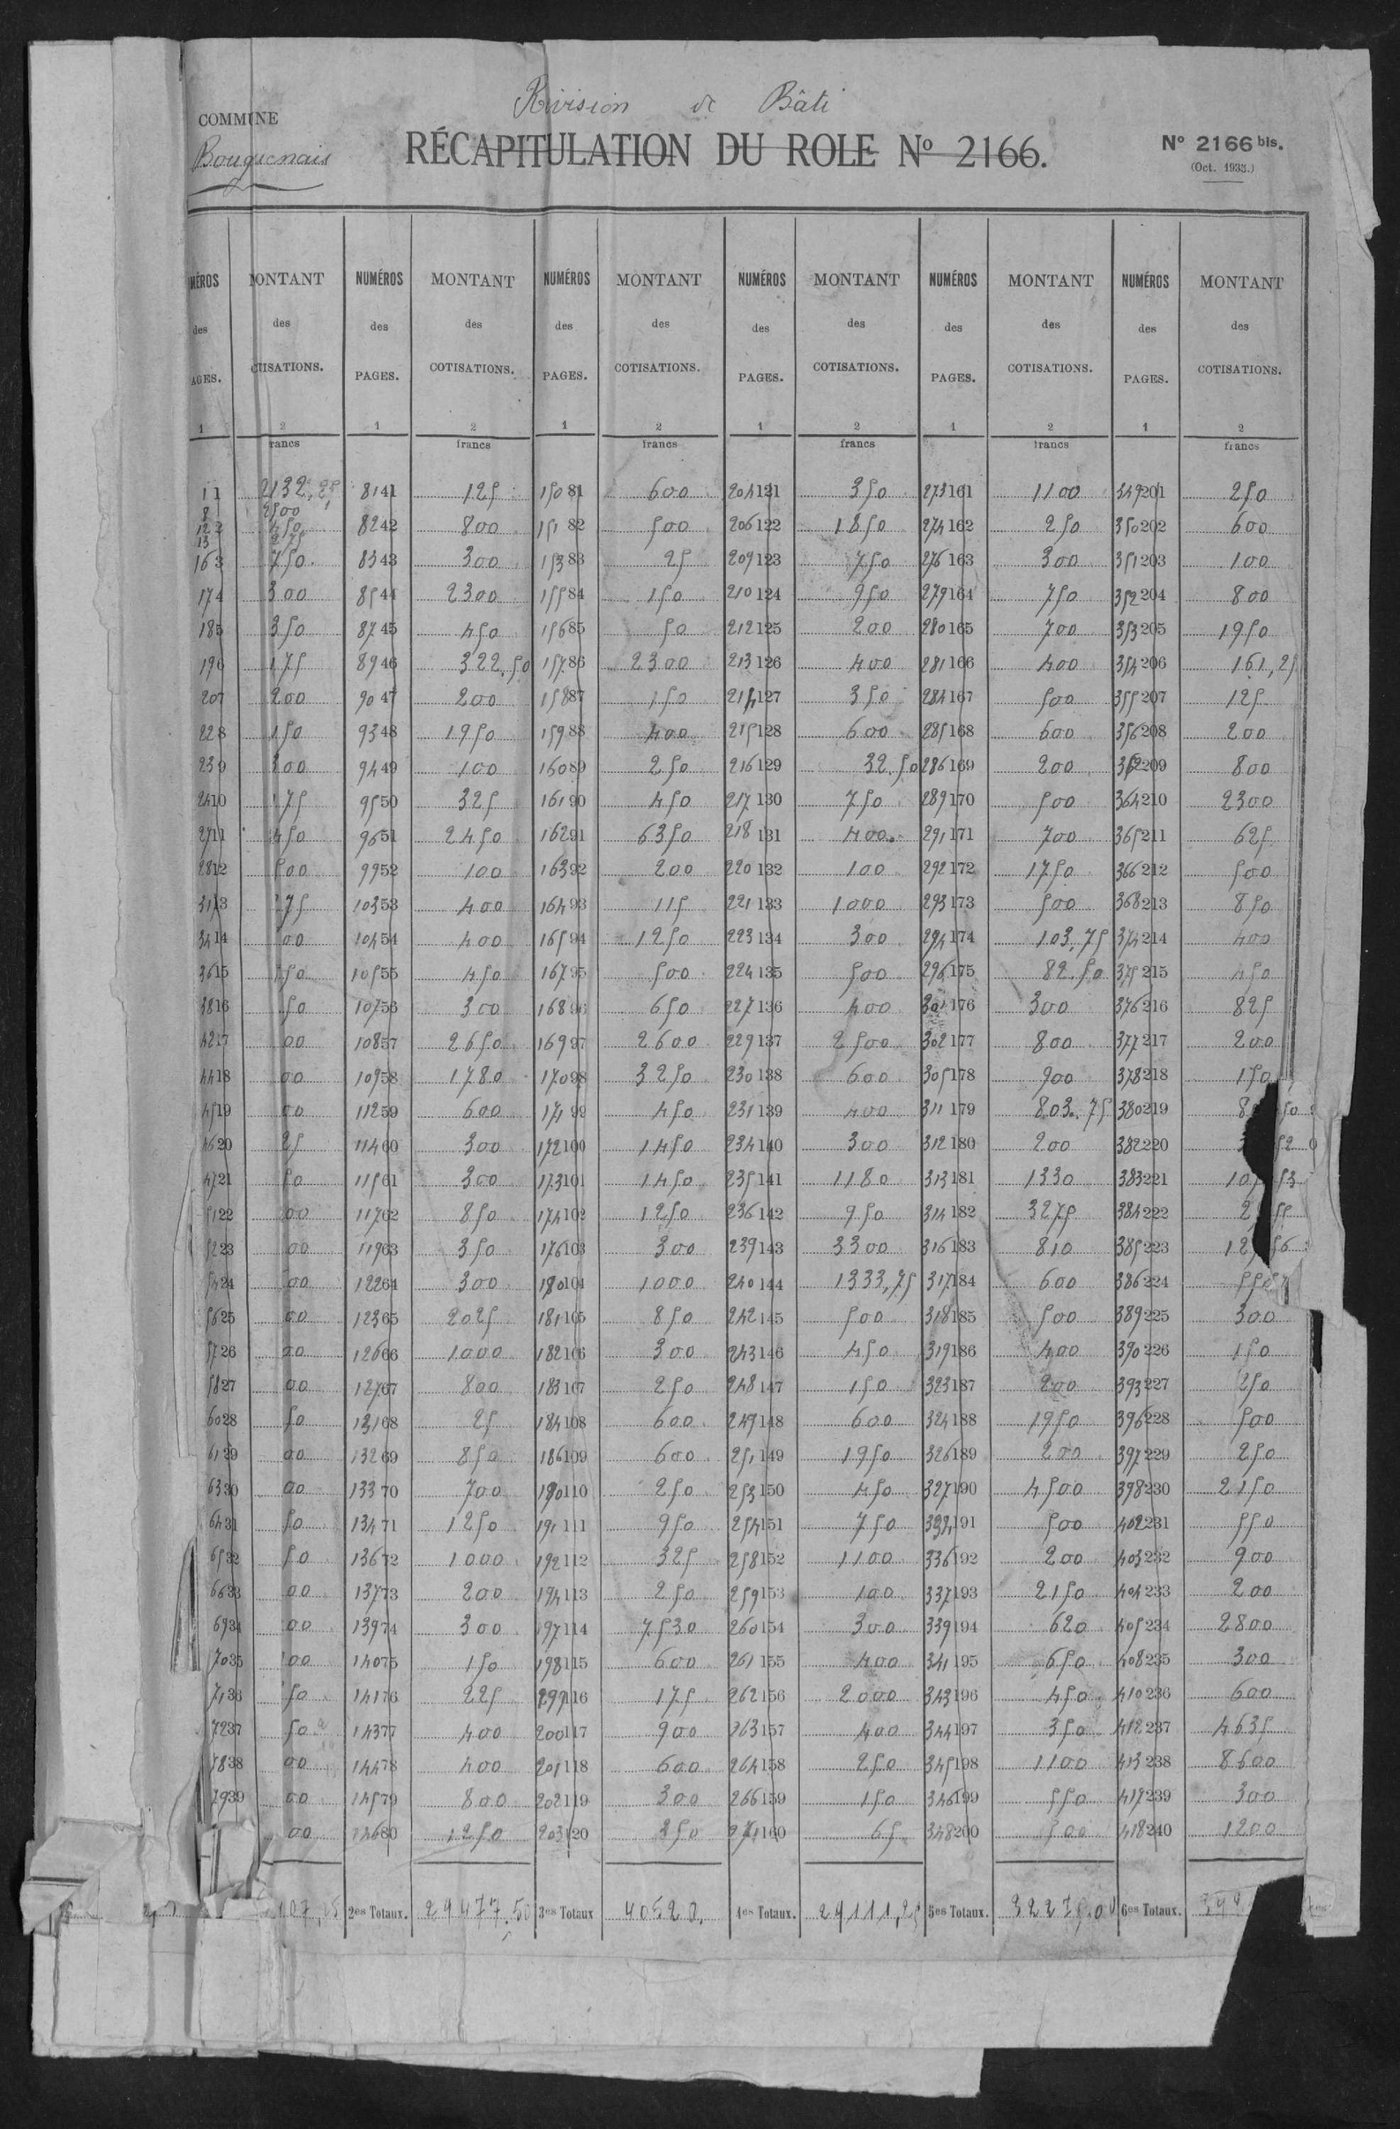 Révision de Bâti
COMMUNE
Bouguenais
RÉCAPITULATION DU ROLE No 2166.
No 2166 bis.
(Oct. 1933.)
MÉROS MONTANT NUMÉROS MONTANT NUMÉROS MONTANT NUMÉROS MONTANT NUMÉROS MONTANT NUMÉROS MONTANT
des des des des des des des des des des des des
AGES. COTISATIONS. PAGES. COTISATIONS. PAGES. COTISATIONS. PAGES. COTISATIONS. PAGES. COTISATIONS. PAGES. COTISATIONS.
1 2 1 2 1 2 1 2 1 2 1 2
francs francs francs francs francs francs
1 1 2132,25 81 41 125 150 81 600 204 121 350 273 161 1100 349 201 250
8 2500
12 2 450 82 42 800 151 82 500 206 122 1850 274 162 250 350 202 600
13
16 3 750 83 43 300 153 83 25 209 123 750 276 163 300 351 203 100
17 4 300 85 44 2300 155 84 150 210 124 950 279 164 750 352 204 800
18 5 350 87 45 450 156 85 50 212 125 200 280 165 700 353 205 1950
19 6 175 89 46 322.50 157 86 2300 213 126 400 281 166 400 354 206 161,25
20 7 200 90 47 200 158 87 150 214 127 350 284 167 500 355 207 125
22 8 150 93 48 1950 159 88 400 215 128 600 285 168 600 356 208 200
23 9 300 94 49 100 160 89 250 216 129 32.50 286 169 200 362 209 800
24 10 175 95 50 325 161 90 450 217 130 750 289 170 500 364 210 2300
27 11 450 96 51 2450 162 91 6350 218 131 400 291 171 700 365 211 625
28 12 500 99 52 100 163 92 200 220 132 100 292 172 1750 366 212 500
31 13 275 103 53 400 164 93 115 221 133 1000 293 173 500 368 213 850
34 14 00 104 54 400 165 94 1250 223 134 300 294 174 103,75 374 214 400
36 15 50 105 55 450 167 95 500 224 135 500 296 175 82.50 375 215 450
38 16 50 107 56 300 168 96 650 227 136 400 301 176 300 376 216 825
42 17 00 108 57 2650 169 97 2600 229 137 2500 302 177 800 377 217 200
44 18 00 109 58 1780 170 98 3250 230 138 600 305 178 900 378 218 150
45 19 00 112 59 600 171 99 450 231 139 400 311 179 803.75 380 219
46 20 25 114 60 300 172 100 1450 234 140 300 312 180 200 382 220
47 21 50 115 61 300 173 101 1450 235 141 1180 313 181 1330 383 221
51 22 00 117 62 850 174 102 1250 236 142 950 314 182 3275 384 222
52 23 00 119 63 350 176 103 300 239 143 3300 316 183 810 385 223
54 24 00 122 64 300 180 104 1000 240 144 1333,75 317 184 600 386 224
56 25 00 123 65 2025 181 105 850 242 145 500 318 185 500 389 225 300
57 26 00 126 66 1000 182 106 300 243 146 450 319 186 400 390 226 150
58 27 00 127 67 800 183 107 250 248 147 150 323 187 200 393 227 250
60 28 50 131 68 25 184 108 600 249 148 600 324 188 1950 396 228 500
61 29 00 132 69 850 186 109 600 251 149 1950 326 189 200 397 229 250
63 30 00 133 70 700 190 110 250 253 150 450 327 190 4500 398 230 2150
64 31 50 134 71 1250 191 111 950 254 151 750 334 191 500 402 231 550
65 32 50 136 72 1000 192 112 325 258 152 1100 336 192 200 403 232 900
66 33 00 137 73 200 194 113 250 259 153 100 337 193 2150 404 233 200
69 34 00 139 74 300 197 114 7530 260 154 300 339 194 620 405 234 2800
70 35 00 140 75 150 198 115 600 261 155 400 341 195 650 408 235 300
71 36 50 141 76 225 299 116 175 262 156 2000 343 196 450 410 236 600
72 37 50 143 77 400 200 117 900 263 157 400 344 197 350 412 237 4635
78 38 00 144 78 400 201 118 600 264 158 250 345 198 1100 413 238 8600
79 39 00 145 79 800 202 119 300 266 159 150 346 199 550 417 239 300
00 146 80 1250 203 120 350 271 160 65 348 200 500 418 240 1200
107,25 2es Totaux. 29477.50 3es Totaux 40520. 4es Totaux. 29111,25 5es Totaux. 32275.00 6es Totaux.